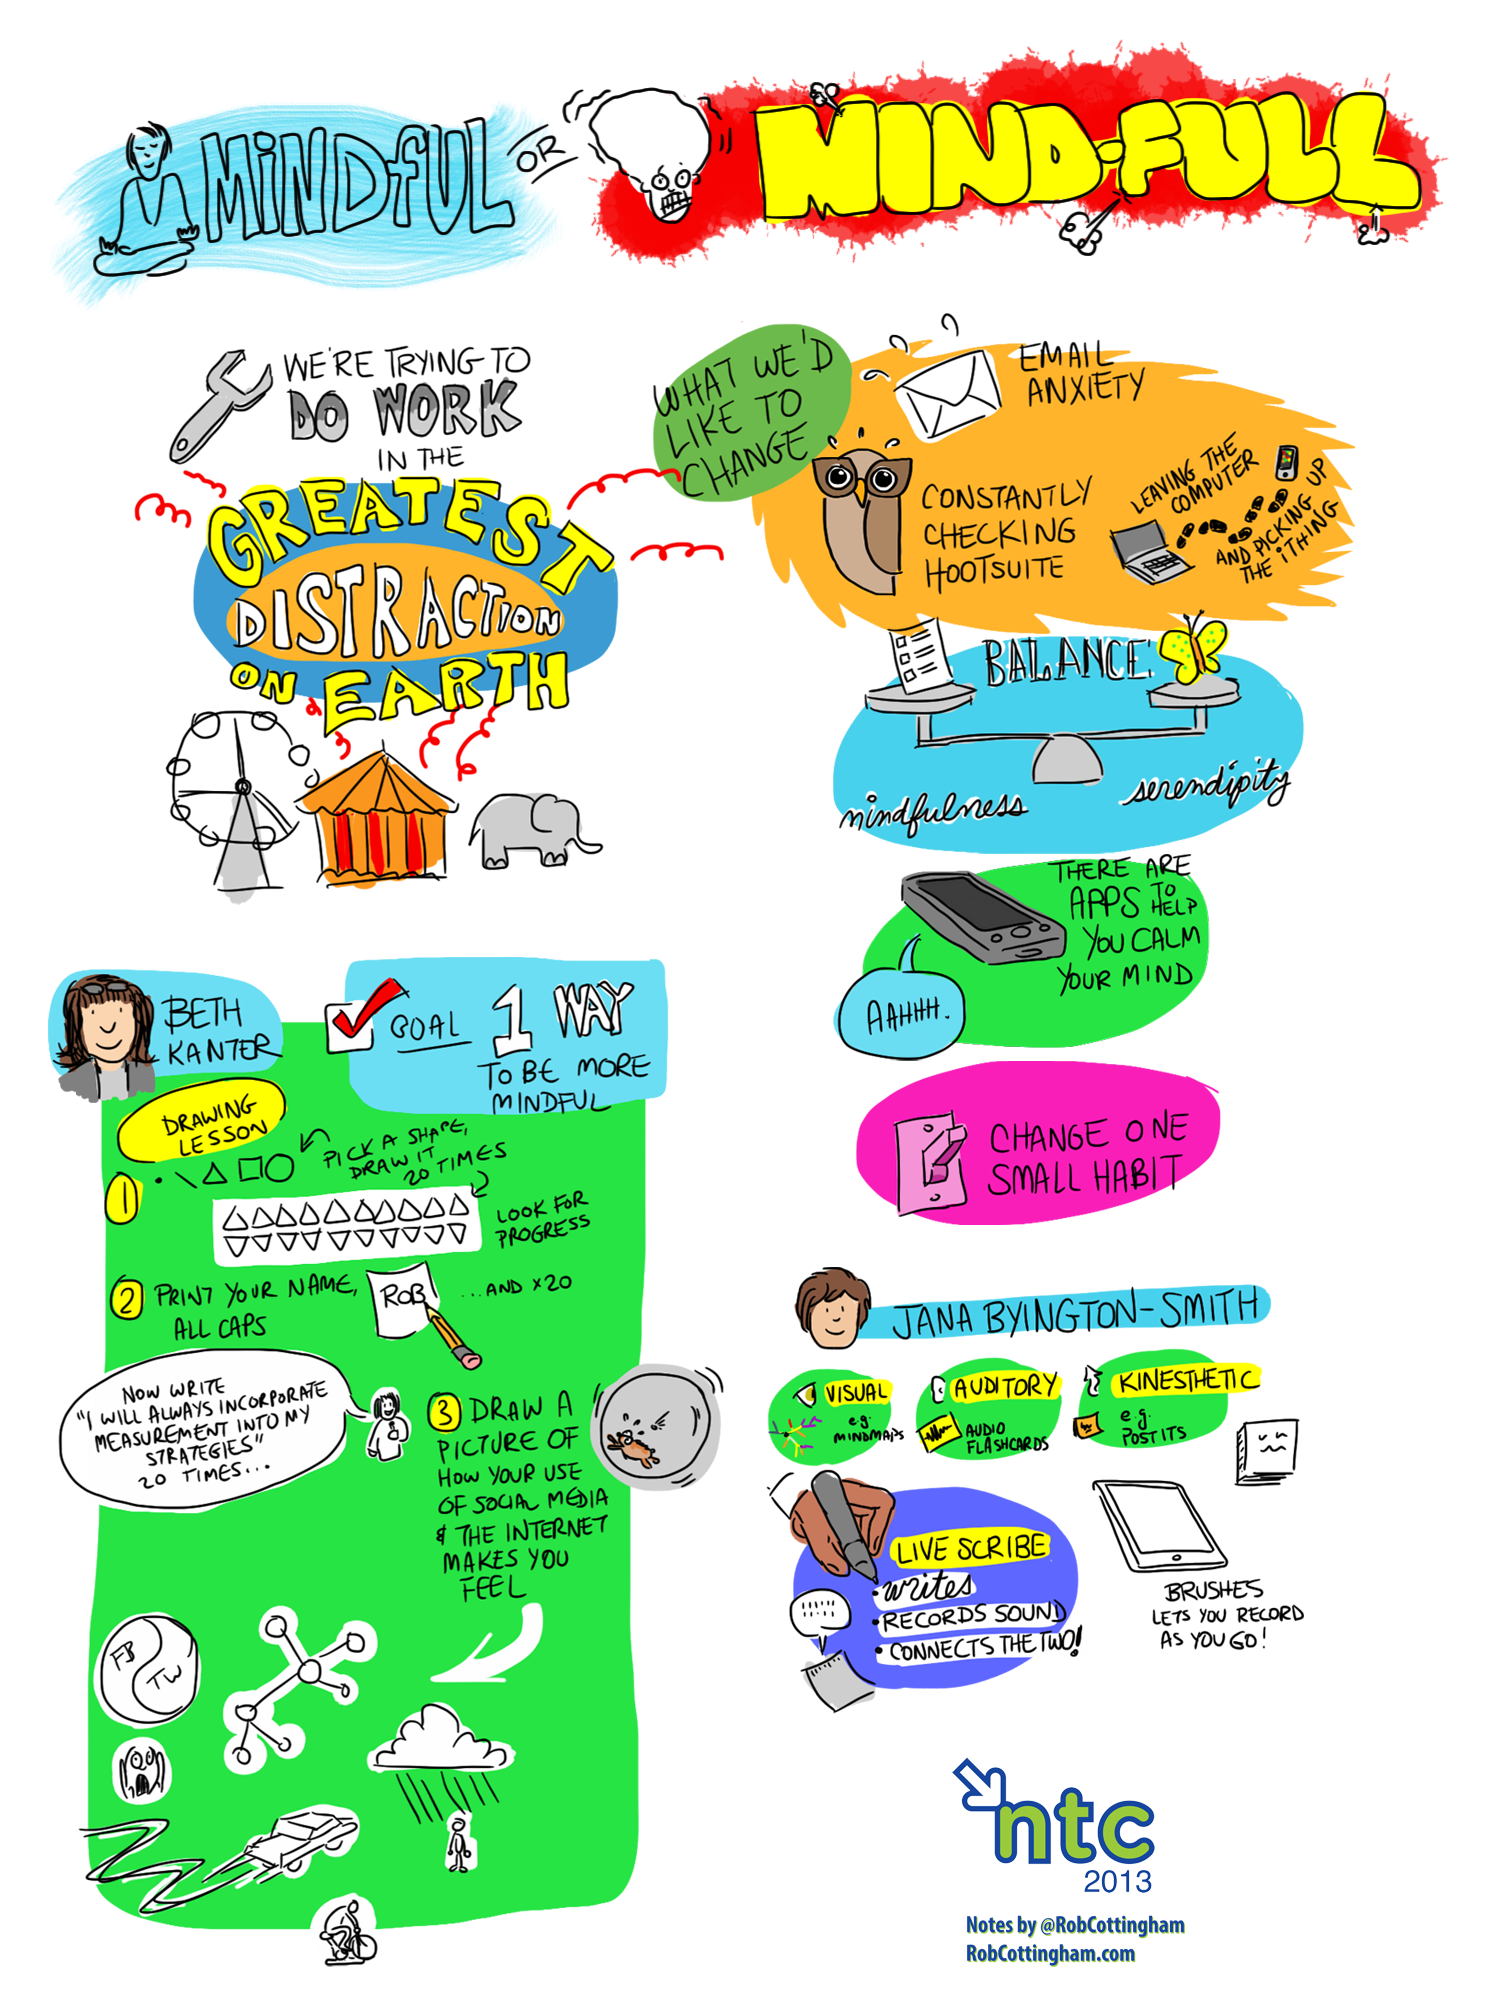 MiNDfUL
OR
MIND-FULL
WE'RE TRYING TO
DO WORK
IN THE
GREATEST
DISTRACTION
ON EARTH
WHAT WE'D
LIKE TO
CHANGE
EMAIL
ANXIETY
CONSTANTLY
CHECKING
HOOTSUITE
LEAVING THE
COMPUTER
AND PICKING UP
THE iTHING
BALANCE:
mindfulness
serendipity
THERE ARE
APPS TO
HELP
YOU CALM
YOUR MIND
AAHHH.
CHANGE ONE
SMALL HABIT
BETH
KANTER
GOAL
1 WAY
TO BE MORE
MINDFUL
DRAWING
LESSON
1
PICK A SHAPE,
DRAW IT
20 TIMES
LOOK FOR
PROGRESS
2 PRINT YOUR NAME,
ALL CAPS
ROB
...AND x20
NOW WRITE
"I WILL ALWAYS INCORPORATE
MEASUREMENT INTO MY
STRATEGIES"
20 TIMES...
3 DRAW A
PICTURE OF
HOW YOUR USE
OF SOCIAL MEDIA
& THE INTERNET
MAKES YOU
FEEL
FB
TW
JANA BYINGTON-SMITH
VISUAL
e.g.
MINDMAPS
AUDITORY
AUDIO
FLASHCARDS
KINESTHETIC
e.g.
POST ITS
LIVE SCRIBE
• writes
• RECORDS SOUND
• CONNECTS THE TWO!
BRUSHES
LETS YOU RECORD
AS YOU GO!
ntc
2013
Notes by @RobCottingham
RobCottingham.com